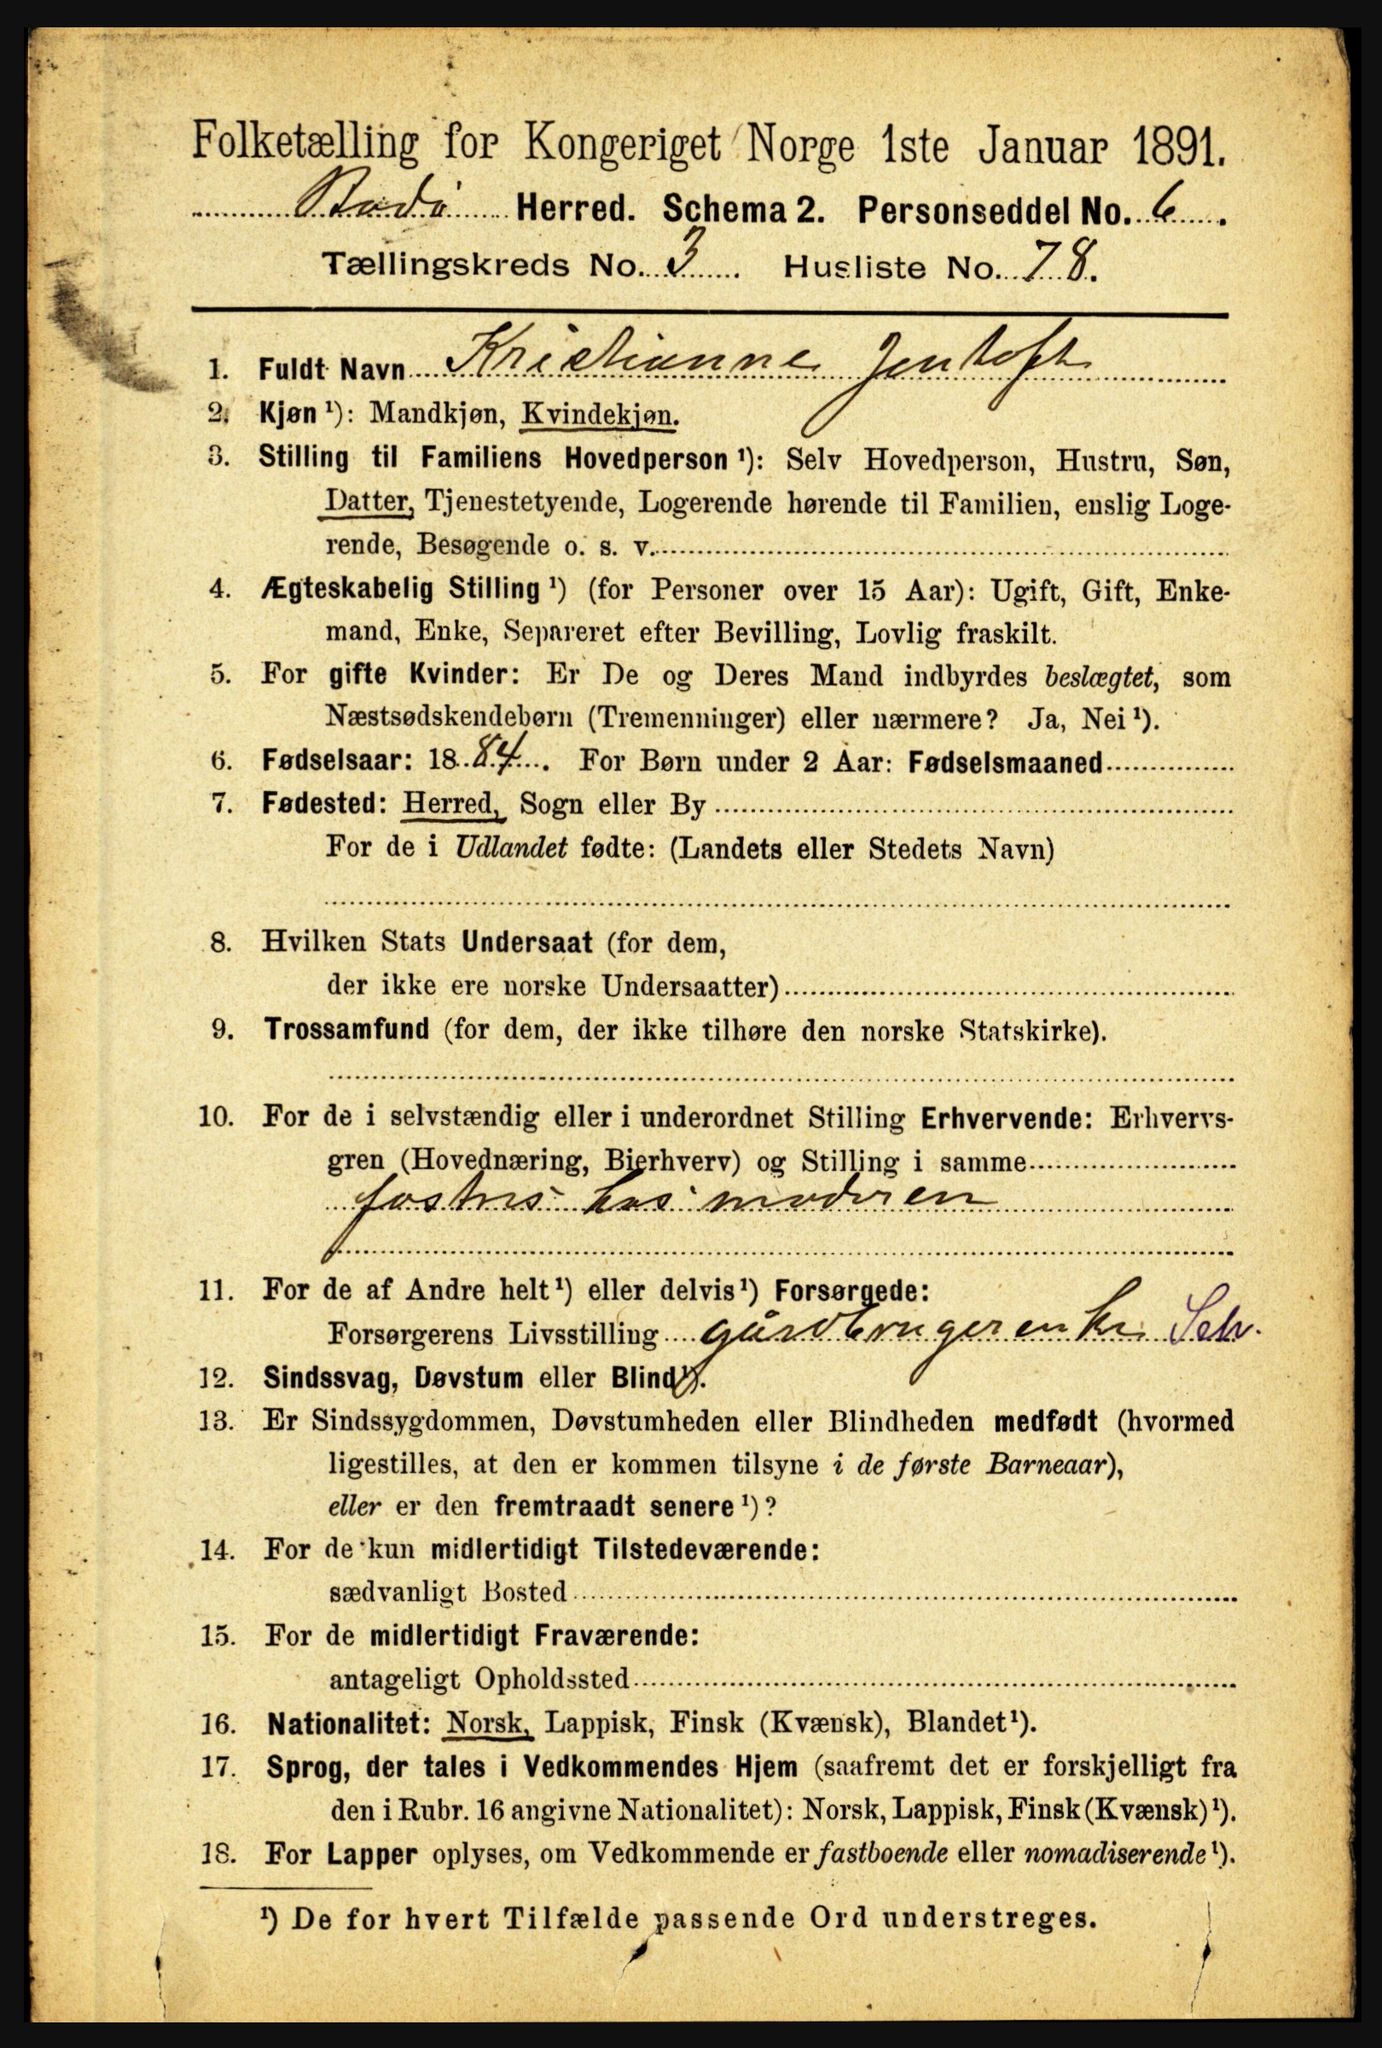 Folketælling for Kongeriget Norge 1ste Januar 1891.
Bodø Herred. Schema 2. Personseddel No. 6.
Tællingskreds No. 3. Husliste No. 78.
1. Fuldt Navn Kristianne Jentoft
2. Kjøn ¹): Mandkjøn, Kvindekjøn.
3. Stilling til Familiens Hovedperson ¹): Selv Hovedperson, Hustru, Søn,
Datter, Tjenestetyende, Logerende hørende til Familien, enslig Loge-
rende, Besøgende o. s. v.
4. Ægteskabelig Stilling ¹) (for Personer over 15 Aar): Ugift, Gift, Enke-
mand, Enke, Separeret efter Bevilling, Lovlig fraskilt.
5. For gifte Kvinder: Er De og Deres Mand indbyrdes beslægtet, som
Næstsødskendebørn (Tremenninger) eller nærmere? Ja, Nei ¹).
6. Fødselsaar: 1884. For Børn under 2 Aar: Fødselsmaaned
7. Fødested: Herred, Sogn eller By
For de i Udlandet fødte: (Landets eller Stedets Navn)
8. Hvilken Stats Undersaat (for dem,
der ikke ere norske Undersaatter)
9. Trossamfund (for dem, der ikke tilhøre den norske Statskirke).
10. For de i selvstændig eller i underordnet Stilling Erhvervende: Erhvervs-
gren (Hovednæring, Bierhverv) og Stilling i samme
fostres hos moderen
11. For de af Andre helt ¹) eller delvis ¹) Forsørgede:
Forsørgerens Livsstilling gårdbrugerenke Selv.
12. Sindssvag, Døvstum eller Blind ¹).
13. Er Sindssygdommen, Døvstumheden eller Blindheden medfødt (hvormed
ligestilles, at den er kommen tilsyne i de første Barneaar),
eller er den fremtraadt senere ¹)?
14. For de kun midlertidigt Tilstedeværende:
sædvanligt Bosted
15. For de midlertidigt Fraværende:
antageligt Opholdssted
16. Nationalitet: Norsk, Lappisk, Finsk (Kvænsk), Blandet ¹).
17. Sprog, der tales i Vedkommendes Hjem (saafremt det er forskjelligt fra
den i Rubr. 16 angivne Nationalitet): Norsk, Lappisk, Finsk (Kvænsk) ¹).
18. For Lapper oplyses, om Vedkommende er fastboende eller nomadiserende ¹).
¹) De for hvert Tilfælde passende Ord understreges.